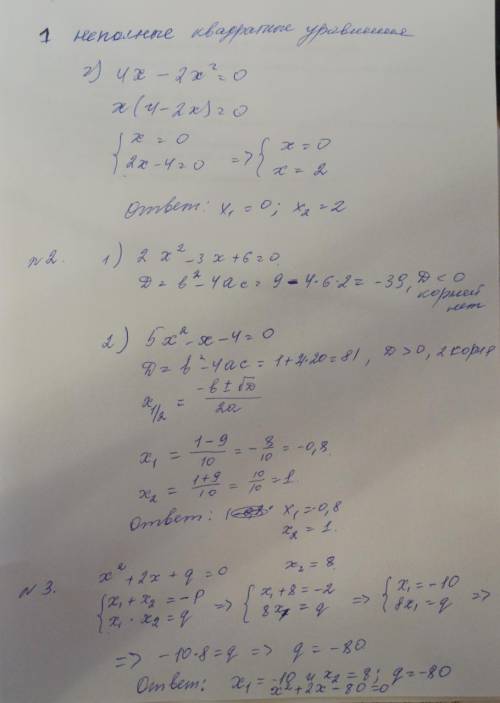 1 неполные квадратные уравнения
2) 4x - 2x² = 0
x(4 - 2x) = 0
{ x = 0
2x - 4 = 0 => { x = 0
x = 2
Ответ: x₁ = 0; x₂ = 2
№2. 1) 2x² - 3x + 6 = 0
D = b² - 4ac = 9 - 4·6·2 = -39, D < 0
корней
нет
2) 5x² - x - 4 = 0
D = b² - 4ac = 1 + 4·20 = 81, D > 0, 2 корня
x₁/₂ = (-b ± √D)/2a
x₁ = (1-9)/10 = -8/10 = -0,8
x₂ = (1+9)/10 = 10/10 = 1.
Ответ: x₁ = -0,8
x₂ = 1.
№3. x² + 2x + q = 0 x₂ = 8
{ x₁ + x₂ = -p
x₁ · x₂ = q => { x₁ + 8 = -2
8x₁ = q => { x₁ = -10
8x₁ = q =>
=> -10·8 = q => q = -80
Ответ: x₁ = -10 и x₂ = 8; q = -80
x² + 2x - 80 = 0